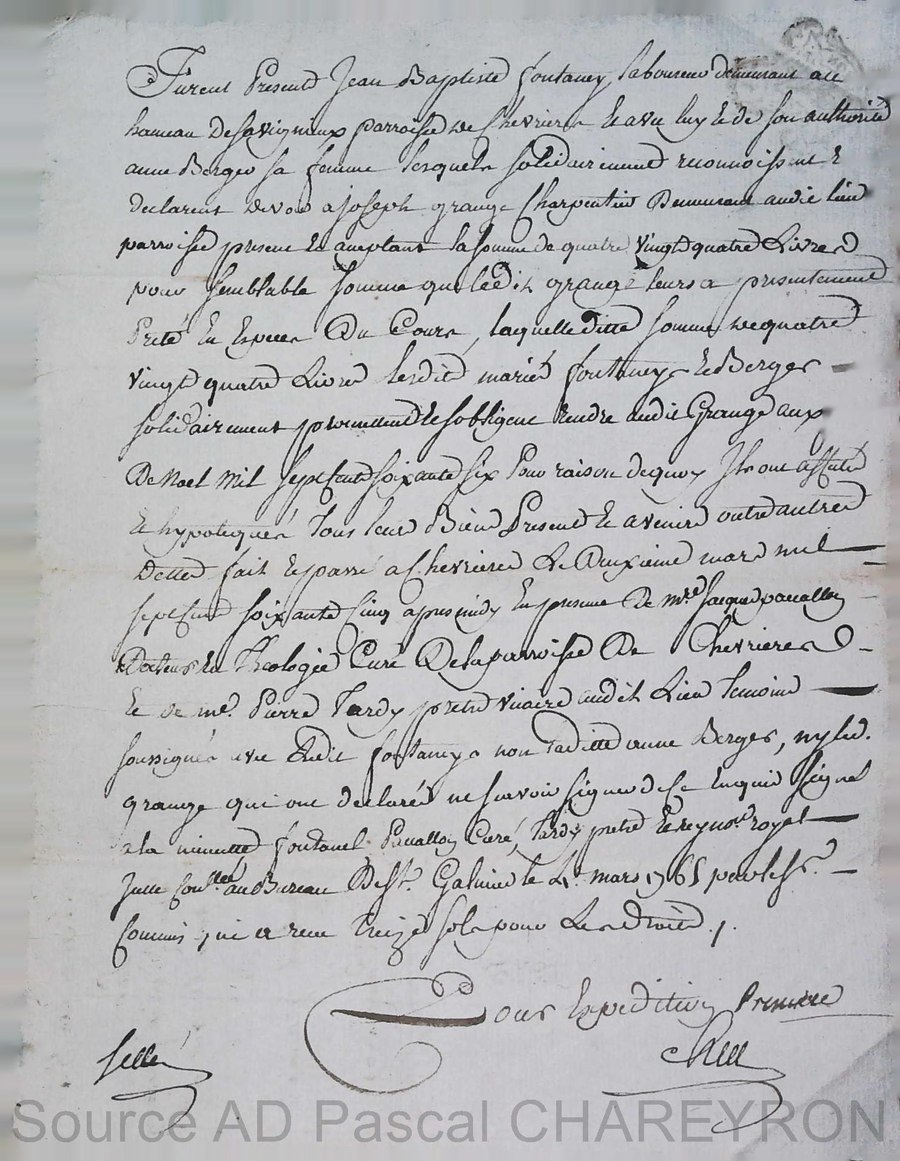 Furent Presents Jean Baptiste fontaney, laboureur demeurant au
hameau de savigneux parroisse de Chevrieres et avec luy et de son authorité
anne Berger sa femme lesquels solidairement reconnoissent et
declarent devoir a joseph grange Charpentier Demeurant audit lieu
parroisse present et aceptant la somme de quatre vingt quatre Livres
pour semblable somme que ledit grange leurs a presentement
Preté En Especes Du Cours, laquelle ditte somme de quatre
vingt quatre Livres lesdits mariés fontaneys et Berger
solidairement promettent et sobligent Rendre audit Grange aux
De Noel Mil sept Cent soixante six Pour raison de quoy Ils ont affecté
et hypotequés Tous leur Biens Presents et avenirs outre autres
Dettes fait et passé a Chevrieres Le Deuxieme mars mil
sept Cent soixante Cinq apres midy En presence De mre Jacques
Docteur En Theologie Curé De la parroisse De Chevrieres
Et de me. Pierre Tardy pretre vicaire audit Lieu temoins
soussignés avec Ledit fontaneys non laditte anne Berger, ny led.
grange qui ont declarés ne savoir signer de ce Enquis signé
a la minutte fontanel Curé, Tardy pretre et re. royal
au Bureau De st. Galmier le 4. mars 1765 par le sr.
Commis qui a recu treize sols pour Les Droits ./.
Pour Expedition Premiere
Sellé
Source AD Pascal CHAREYRON